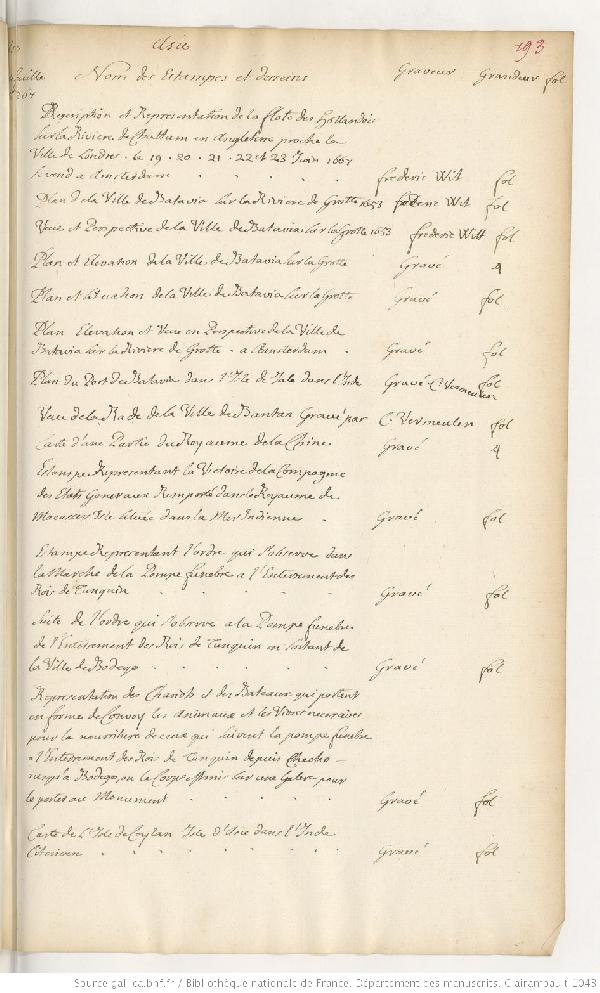 Asie 193
feuille Nom des Estampes et desseins Graveur Grandeur fol
207
Description et Representation de la flote des Hollandois
sur la Riviere de Chattam en Angleterre proche la
Ville de Londres. le 19. 20. 21. 22 et 23 Juin 1667
se vend a Amsterdam frederic Wit fol
Plan de la Ville de Batavia sur la Riviere de Grotte 1653 frederic Wit fol
Veue et Perspective de la Ville de Batavia sur la Grotte 1653 frederic Witt fol
Plan et Elevation de la Ville de Batavia sur la Grotte Gravé 4
Plan et situation de la Ville de Batavia sur la Grotte Gravé fol
Plan Elevation et Veue en Perspective de la Ville de
Batavia sur la Riviere de Grotte - a Amsterdam Gravé fol
Plan du Port de Batavia dans l'Isle de Jale dans l'Inde Gravé C. Vermeulen fol
Veue de la Rade de la Ville de Bantan Gravé par C. Vermeulen fol
Carte d'une Partie du Royaume de la Chine Gravé 4
Estampe Representant la Victoire de la Compagnie
des Etats Generaux Remporté dans le Royaume de
Macassar située dans la Mer Indienne Gravé fol
Estampe Representant l'ordre qui s'observe dans
la Marche de la Pompe funebre a l'Enterrement des
Rois de Tunquin Gravé fol
Suite de l'ordre qui s'observe a la Pompe funebre
de l'Enterrement des Rois de Tunquin en sortant de
la Ville de Bodego Gravé fol
Representation des Chariots et des Bateaux qui portent
en forme de Convoy les Animaux et les Vivres necessaires
pour la nourriture de ceux qui suivent la pompe funebre
a l'Enterrement des Rois de Tunquin depuis Checho
jusqu'a Bodego, ou le Corps est mis sur une Galere pour
le porter au Monument Gravé fol
Carte de L'Isle de Ceylan Isle d'Asie dans l'Inde
Citerieure Gravé fol
Source gallica.bnf.fr / Bibliothèque nationale de France. Département des manuscrits. Clairambault 1043